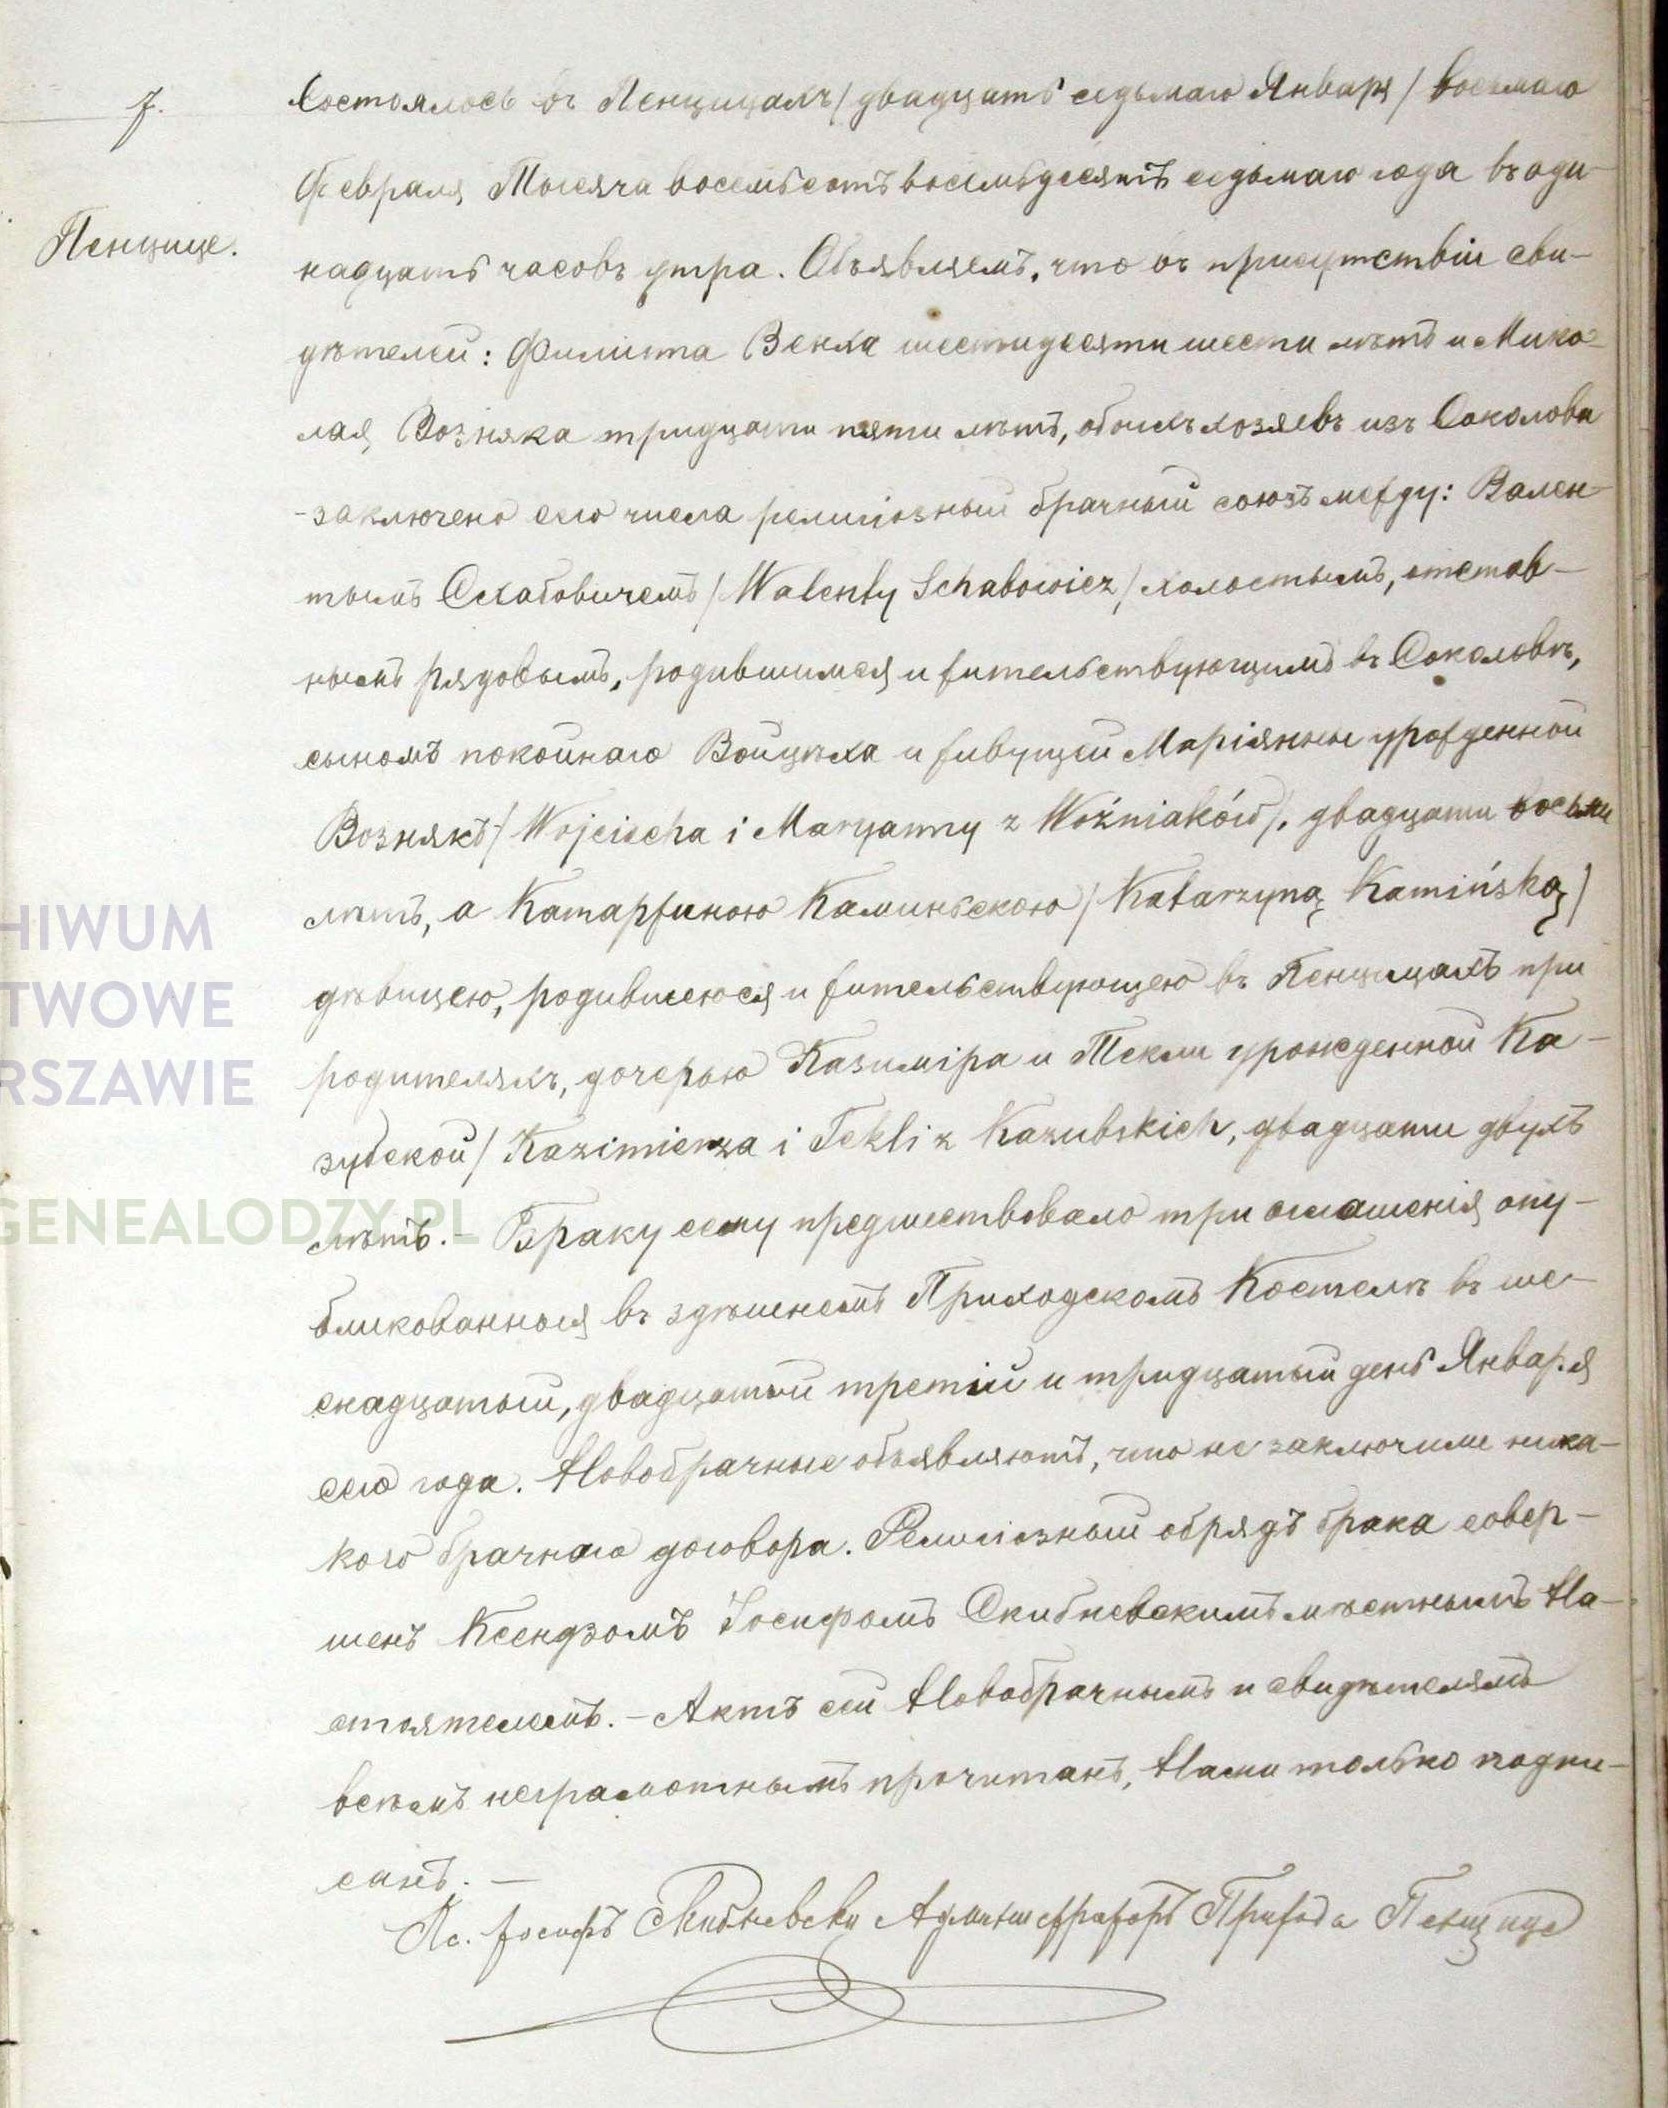 7.
Пенцице.
Состоялось въ Пенцицахъ / двадцать седьмаго Января / восьмаго
Февраля Тысяча восемьсотъ восемьдесятъ седьмаго года въ оди-
надцать часовъ утра. Объявляемъ, что въ присутствіи сви-
дѣтелей: Филипа Венха шестидесяти шести лѣтъ и Мико-
лая Возняка тридцати пяти лѣтъ, обоихъ хозяевъ изъ Соколова
-заключено сего числа религіозный брачный союзъ между: Вален-
тымъ Схабовичемъ / Walenty Schabowicz / холостымъ, отстав-
нымъ рядовымъ, родившимся и жительствующимъ въ Соколовѣ,
сыномъ покойнаго Войцѣха и живущей Маріянны урожденной
Вознякъ / Wojciecha i Maryanny z Woźniaków /, двадцати восьми
лѣтъ, а Катаржиною Каминьскою / Katarzyną Kamińską /
дѣвицею, родившеюся и жительствующею въ Пенцицахъ при
родителяхъ, дочерью Казиміра и Текли урожденной Ка-
зубской / Kazimierza i Tekli z Kazubskich, двадцати двухъ
лѣтъ. - Браку сему предшествовало три оглашенія опу-
бликованныя въ здѣшнемъ Приходскомъ Костелѣ въ ше-
снадцатый, двадцатый третій и тридцатый день Января
сего года. Новобрачные объявляютъ, что не заключили ника-
кого брачнаго договора. Религіозный обрядъ брака совер-
шенъ Ксендзомъ Іосифомъ Скибневскимъ мѣстнымъ На-
стоятелемъ. - Актъ сей Новобрачнымъ и свидѣтелямъ
всѣмъ неграмотнымъ прочитанъ, Нами только подпи-
санъ. -
Кс. Іосифъ Скибневски Администраторъ Прихода Пенцице
HIWUM
TWOWE
RSZAWIE
GENEALODZY.PL